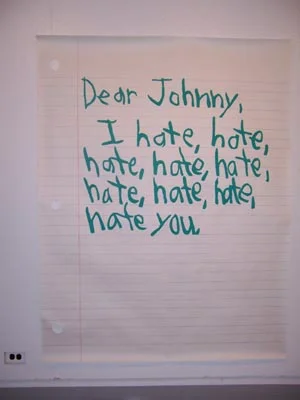 Dear Johnny,
I hate, hate,
hate, hate, hate,
hate, hate, hate,
hate you.